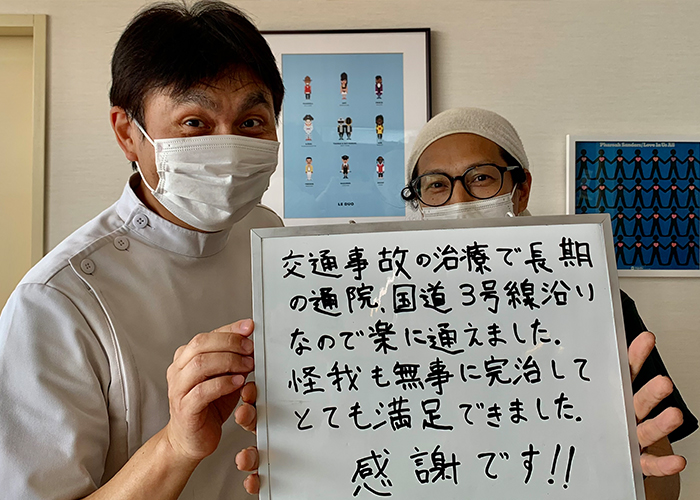 交通事故の治療で長期
の通院、国道3号線沿り
なので楽に通えました.
怪我も無事に完治して
とても満足できました.
感謝です!!
LE DUO
Pharoah Sanders/Love In Us All